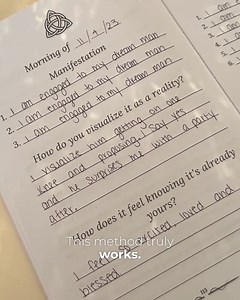 Morning of 11/9/23
Manifestation
1. I am engaged to my dream man
2. I am engaged to my dream man
3. I am engaged to my dream man
How do you visualize it as a reality?
I visualize him getting on one
knee and proposing. I say yes
and he surprises me with a party
after.
How does it feel knowing it's already
yours?
I feel so excited, loved and
blessed
This method truly
works.